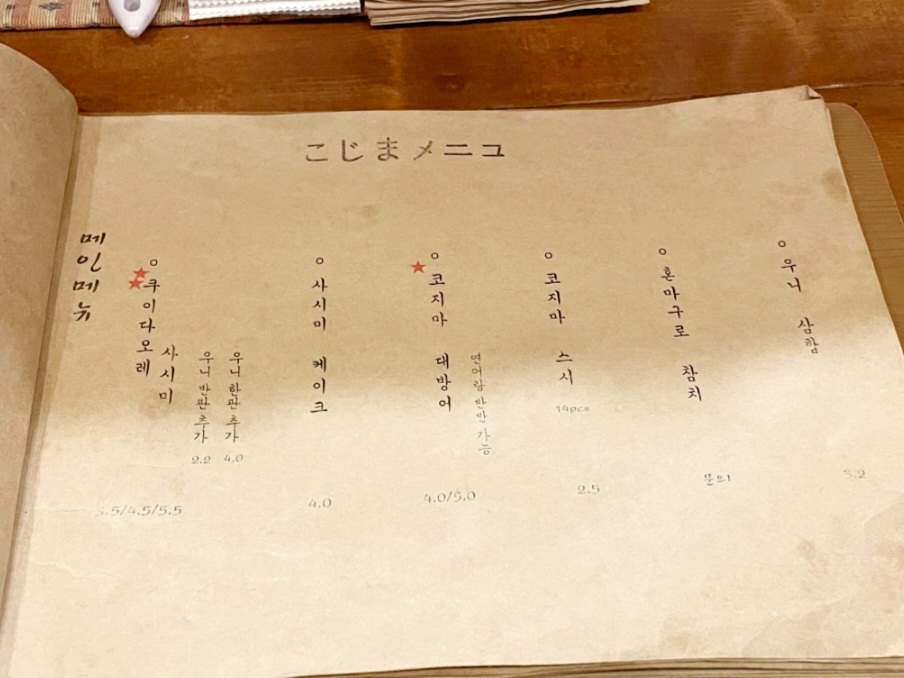 こじまメニユ
메인메뉴
쿠이다오레
사시미
우니 반판추가
2.2
우니 한판추가
4.0
3.5/4.5/5.5
사시미 케이크
4.0
코지마 대방어
연어랑 반반 가능
4.0/5.0
코지마 스시
14pcs
2.5
혼마구로 참치
문의
우니 삼합
3.2